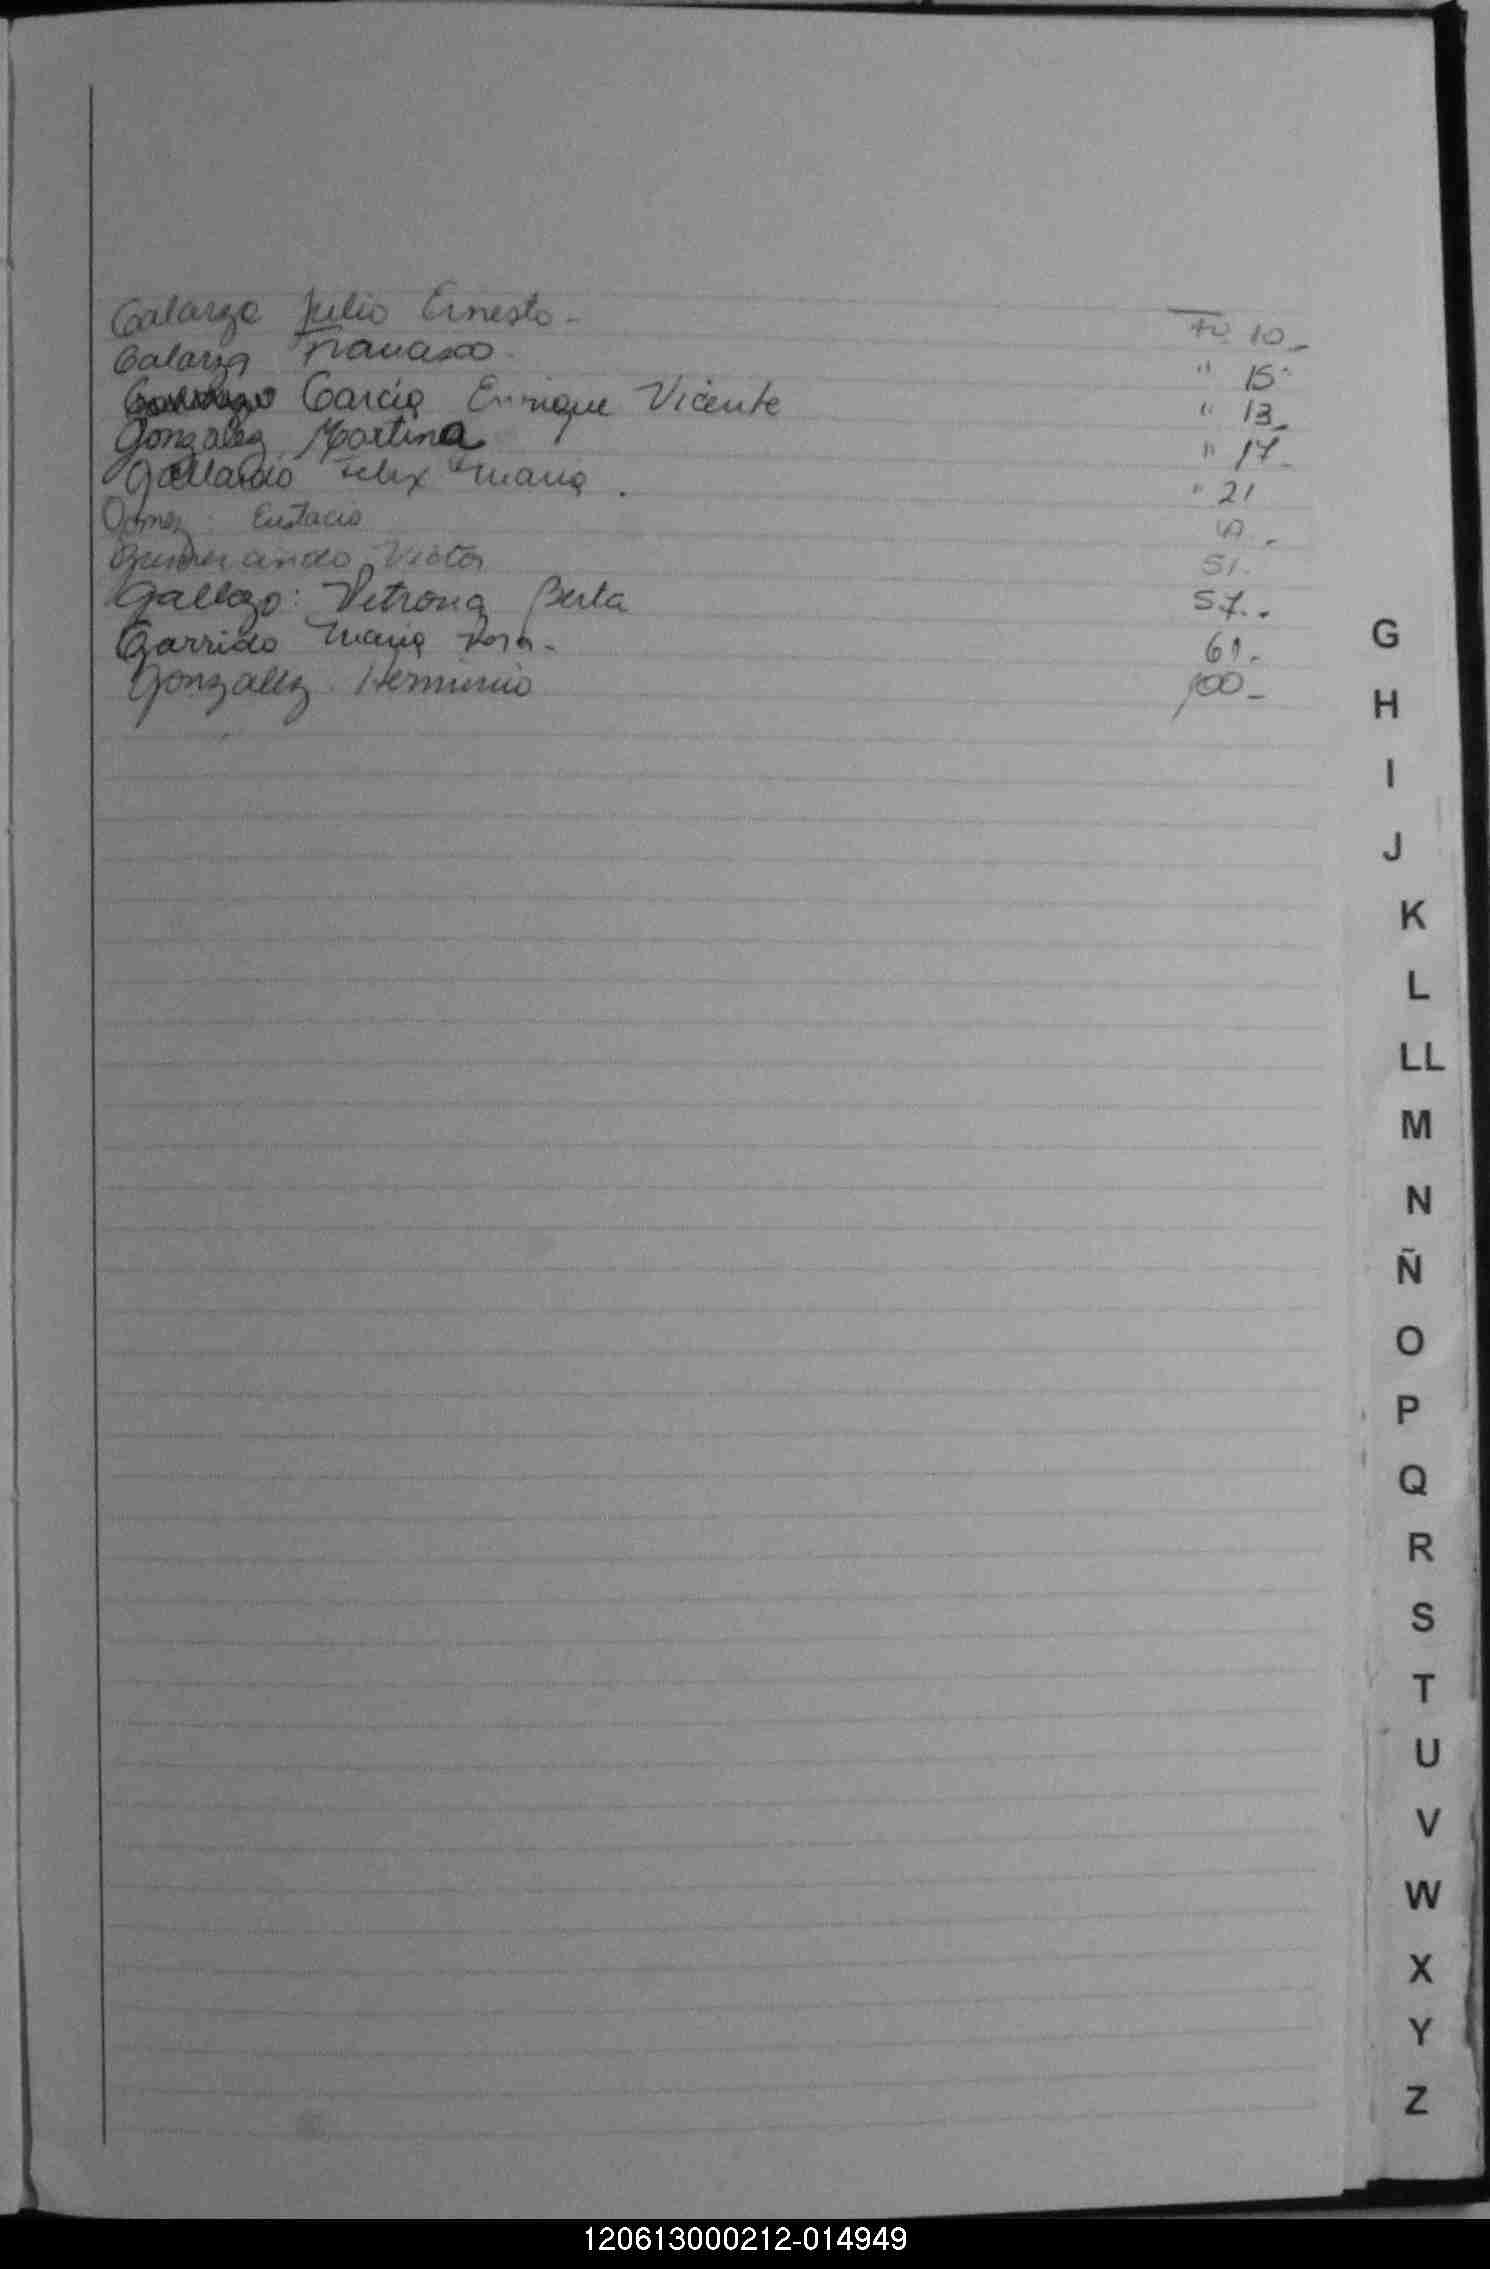 Galarza Julio Ernesto - Fo 10_
Galarza Francisco - " 15-
Garcia Enrique Vicente " 13_
Gonzalez Martina " 17_
Gallardo Felix Maria . " 21
Gomez: Eustacio
Victor 51.
Gallazo: Petrona Berta 57..
Garrido Maria Rosa- 61.-
Gonzalez Herminio 100_
G
H
I
J
K
L
LL
M
N
Ñ
O
P
Q
R
S
T
U
V
W
X
Y
Z
120613000212-014949